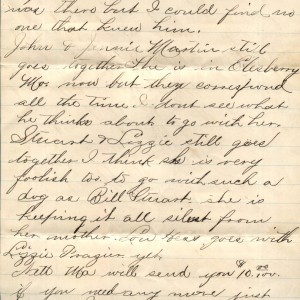 was there but I could find no
one that knew him.
John & Jennie Martin still
goes together. He is in Elsberry
Mo. now but they correspond
all the time. I dont see what
he thinks about to go with her.
Stuart & Lizzie still goes
together I think she is very
foolish too, to go with such a
dog as Bill Stuart. she is
keeping it all silent from
her mother. Lou goes with
Lizzie yet.
Ma will send you $10.00
if you need any more just